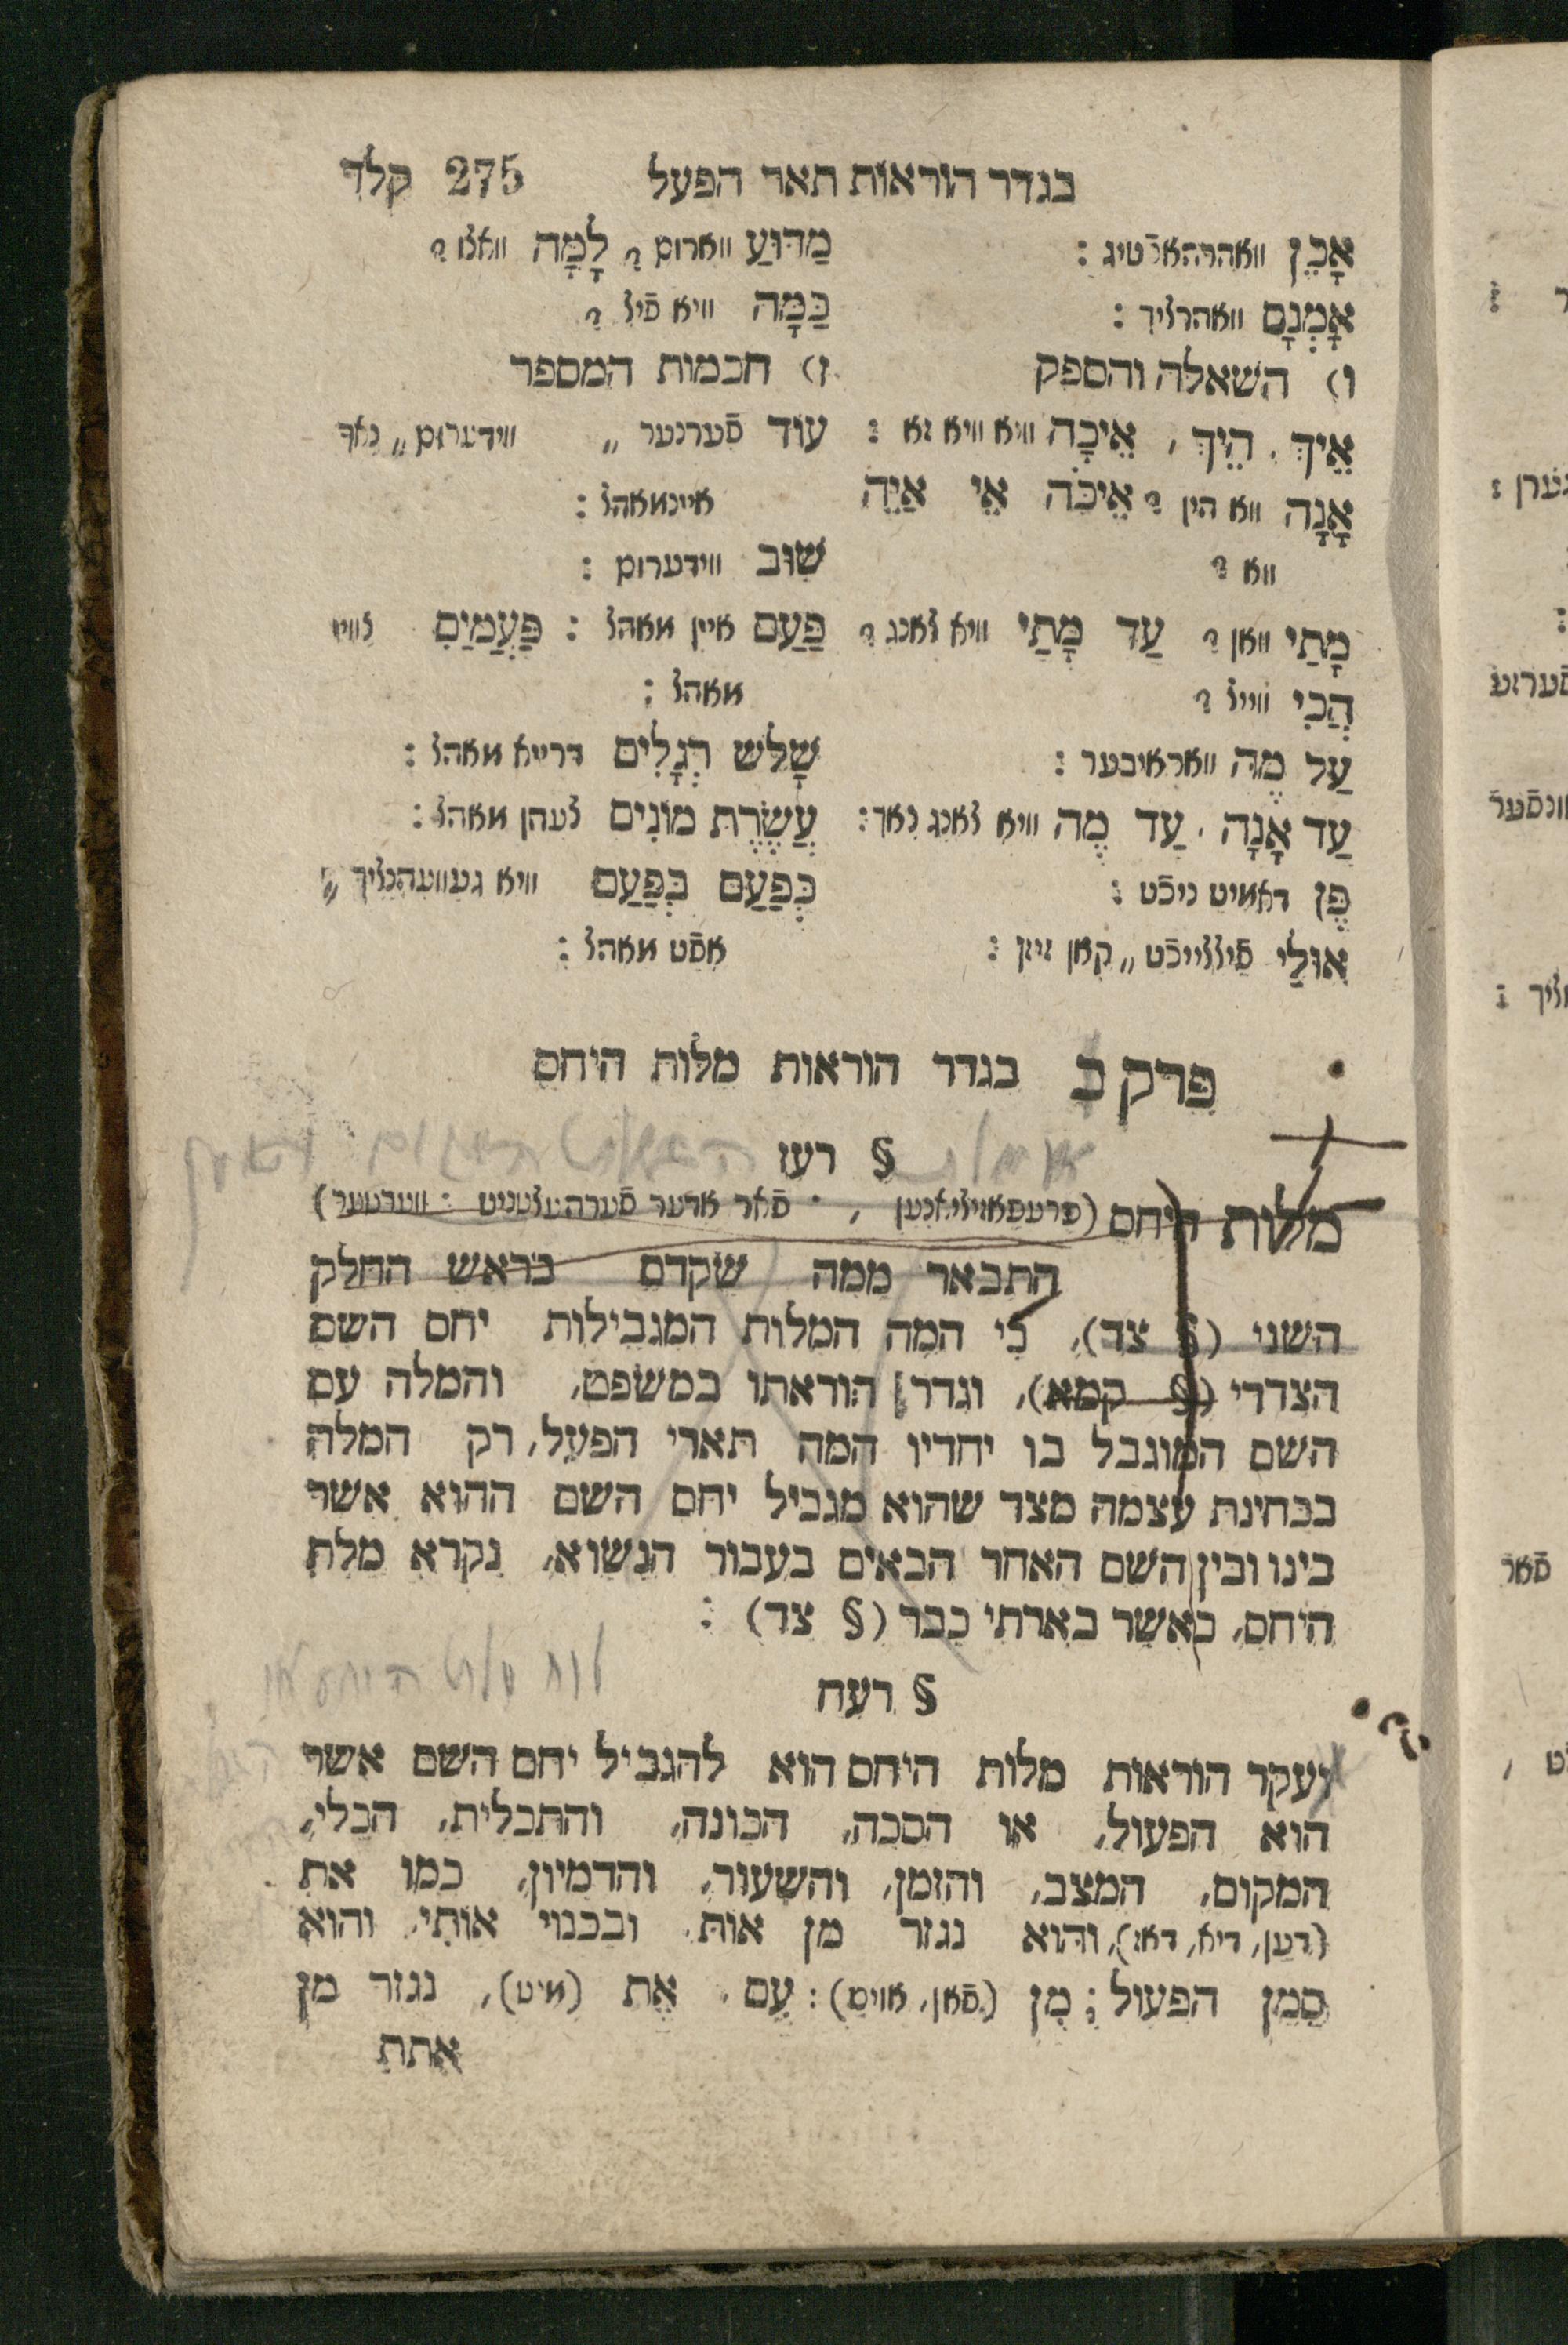 בגדר הוראות תאר הפעל 275 קלד
אָכֵן וואהרהאפֿטיג :
אָמְנָם וואהרליך :
ו) השאלה והספק
אֵיךְ. הֵיךְ, אֵיכָה וויא וויא זא :
אָנָה וואו הין ? אֵיכֹה אֵי אַיֵּה
וואו ?
מָתַי וואן ? עַד מָתַי וויא לאנג ?
הֲכִי ווייל ?
עַל מֶה וואראיבער :
עַד אָנָה . עַד מֶה וויא לאנג נאך :
פֶּן דאמיט ניכֿט :
אוּלַי פֿיללייכֿט ,, קאן זיין :
מַדּוּעַ ווארום ? לָמָּה וואצו ?
כַּמָּה וויא פֿיל ?
ז) הכמות המספר
עוֹד פֿערנער ,, ווידערום ,, נאך
איינמאהל :
שׁוּב ווידערום :
פַּעַם איין מאהל : פַּעֲמַיִם צוויי
מאהל :
שָׁלֹשׁ רְגָלִים דרייא מאהל :
עֲשֶׂרֶת מוֹנִים צעהן מאהל :
כְּפַעַם בְּפַעַם וויא געוועהנליך ,,
אפֿט מאהל :
פרק ב בגדר הוראות מלות היחס
§ רעז
מלות היחס (פרעפאזיציאנען, פֿאר אדער פֿערהעלטניס - ווערטער)
התבאר ממה שקדם בראש החלק
השני (§ צד), כי המה המלות המגבילות יחס השם
הצדדי (§ קמא), וגדר הוראתו במשפט, והמלה עם
השם המוגבל בו יחדיו המה תארי הפעל, רק המלה
בבחינת עצמה מצד שהוא מגביל יחס השם ההוא אשר
בינו ובין השם האחר הבאים בעבור הנשוא, נקרא מלת
היחס, כאשר בארתי כבר (§ צד) :
§ רעח
ועקר הוראות מלות היחס הוא להגביל יחס השם אשר
הוא הפעול, או הסבה, הכונה, והתכלית, הכלי,
המקום, המצב, והזמן, והשעור, והדמיון, כמו את
(דען, דיא, דאז), והוא נגזר מן אות, ובכנוי אותי, והוא
סמן הפעול ; מִן (פֿאן, אויס) : עִם , אֶת (מיט), נגזר מן
אתת